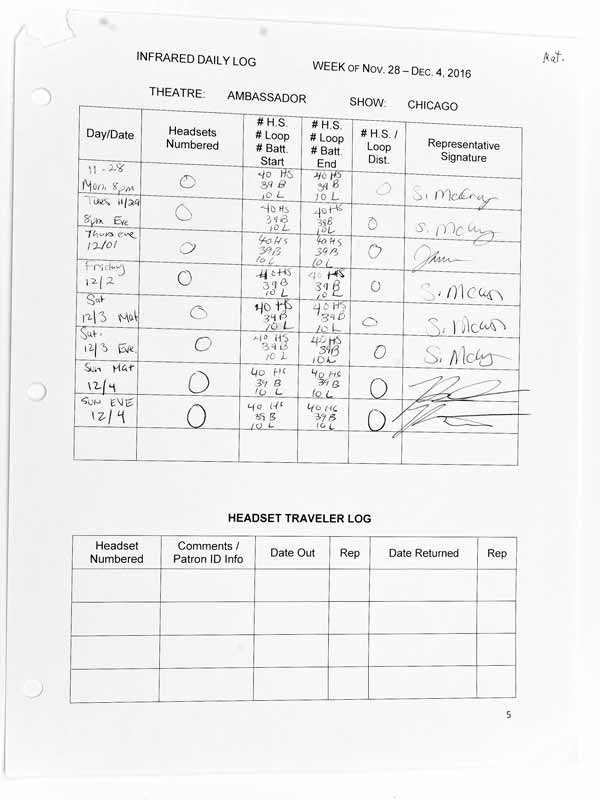 Mat.
INFRARED DAILY LOG WEEK OF NOV. 28 – DEC. 4, 2016
THEATRE: AMBASSADOR SHOW: CHICAGO
Day/Date
Headsets
Numbered
# H.S.
# Loop
# Batt.
Start
# H.S.
# Loop
# Batt.
End
# H.S. /
Loop
Dist.
Representative
Signature
11-28
Mon. 8pm
0
40 HS
39 B
10 L
40 HS
39 B
10 L
0
Tues 11/29
8pm Eve
0
40 HS
39 B
10 L
40 HS
39 B
10 L
0
Thurs eve
12/01
0
40 HS
39 B
10 L
40 HS
39 B
10 L
0
Friday
12/2
0
40 HS
39 B
10 L
40 HS
39 B
10 L
0
Sat
12/3 Mat
0
40 HS
39 B
10 L
40 HS
39 B
10 L
0
Sat.
12/3 Eve.
0
40 HS
39 B
10 L
40 HS
39 B
10 L
0
Sun Mat
12/4
0
40 HS
39 B
10 L
40 HS
39 B
10 L
0
SUN EVE
12/4
0
40 HS
39 B
10 L
40 HS
39 B
10 L
0
HEADSET TRAVELER LOG
Headset
Numbered
Comments /
Patron ID Info
Date Out
Rep
Date Returned
Rep
5